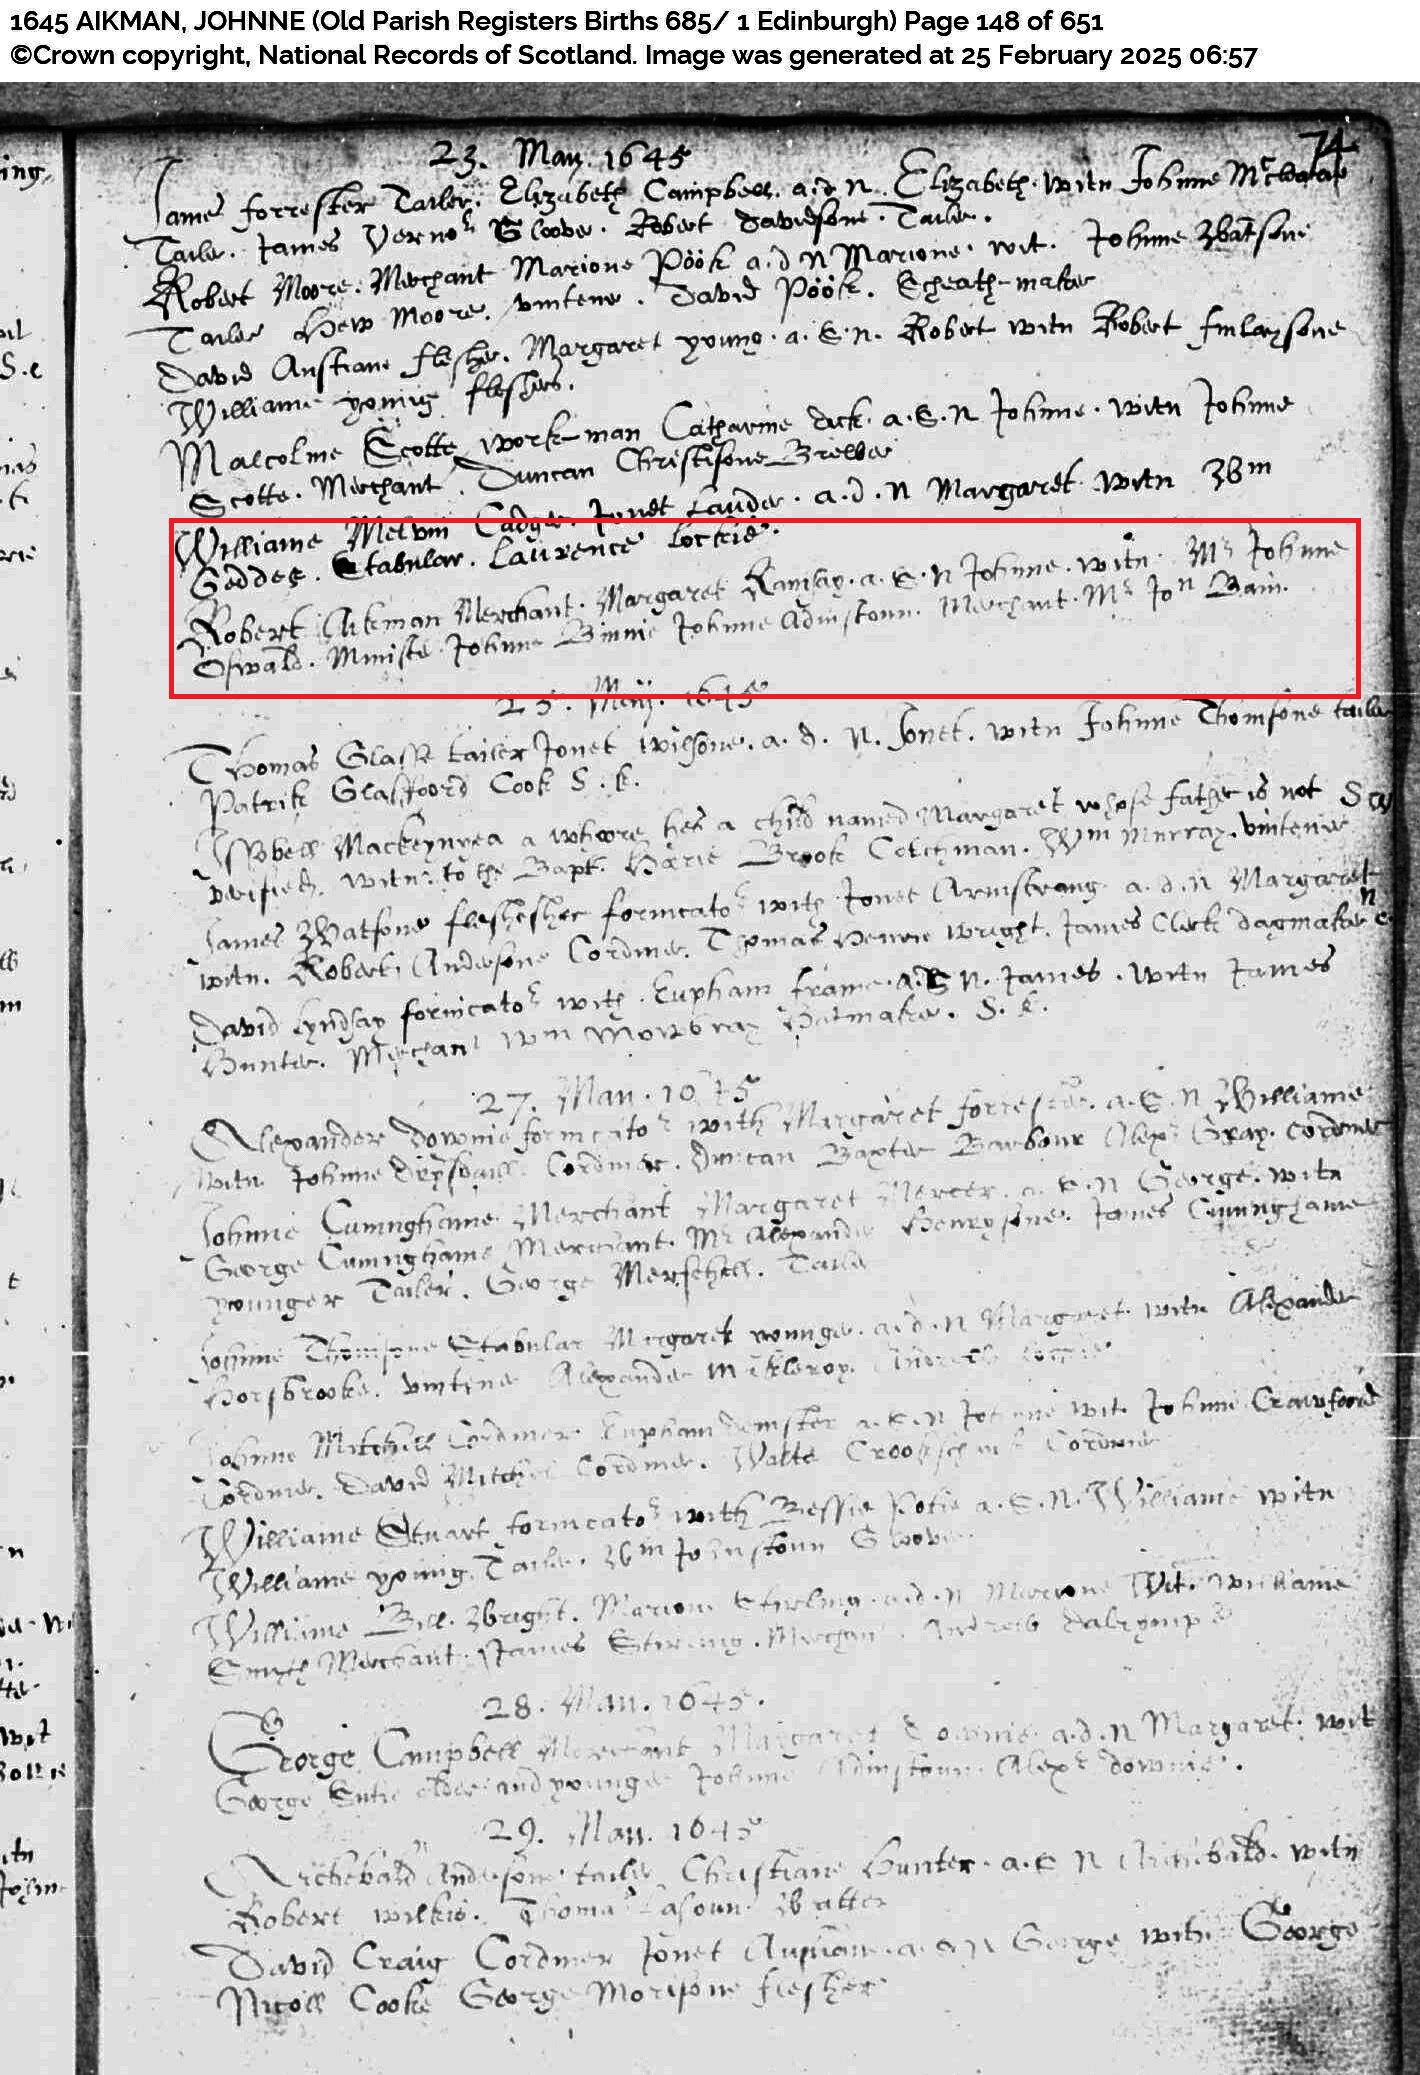 1645 AIKMAN, JOHNNE (Old Parish Registers Births 685/ 1 Edinburgh) Page 148 of 651
©Crown copyright, National Records of Scotland. Image was generated at 25 February 2025 06:57
74
23. May. 1645
James forrester Tailer. Elizabeth Campbell. a.d.n. Elizabeth. witn Johnne
Tailer. James Vernor Gloover. Robert Davidsone. Tailer.
Robert Moore. Merchant Marione Pook a.d n Marione. wit. Johnne Watsone
Tailer Hew Moore. vintener. David Pook. Scheath-maker
David Anstiane flesher. Margaret young. a.S.n. Robert witn Robert finlaysone
Williame young fleshers.
Malcolme Scotte work-man Catharine dick. a.S.n Johnne. witn Johnne
Scotte. Merchant. Duncan Christisone Brewer
Williame Melvin Cadger. Jonet Lauder. a.d.n Margaret. witn Wm
Geddes. Stabular. Laurence Lockie.
Robert Aikman Merchant. Margaret Ramsay. a.S.n Johnne. witn. Mr Johnne
Oswald. Minister Johnne Binnie Johnne Adinstoun. Merchant. Mr Jon Bain.
25. May. 1645
Thomas Glasse tailer Jonet wilsone. a.d.n. Jonet. witn Johnne Thomsone tailer
Patrik Glasfoord Cook S.k.
Issobell Mackeynrea a whoore hes a child named Margaret whose father is not
verified. witn: to the Bapt. Harie Brook Cotchman. Wm Murray. vintener
James Watsone flesher fornicator with Jonet Armstrang. a.d.n Margaret
witn. Robert Andersone Cordiner. Thomas Henrie wright. James Clerk dagmaker
David Lyndsay fornicator with Eupham frame. a.S n. James. witn James
Hunter. Merchant Wm Mowbray Hatmaker. S.k.
27. May. 1645
Alexander Downie fornicator with Margaret forrester. a.S.n Williame
witn Johnne Drysdaill. Cordiner. Duncan Baxter Barbour Alexr Gray. cordiner
Johnne Cuninghame Merchant Margaret Mercer. a.S.n George. witn
George Cuninghame Merchant. Mr Alexander Henrysone. James Cuninghame
younger Tailer. George Merschell. Tailer
Johnne Thomsone Stabular Margaret younger. a.d.n Margaret. witn Alexander
Horsbrooke. vintiner Alexander Andrew
Johnne Mitchell Cordiner. Eupham a.S.n Johnne wit. Johnne Crawfoord
Cordiner. David Mitchel Cordiner. Cordiner
Williame Stuart fornicator with Bessie Potie a.S.n. Williame witn
Williame young. Tailer. Wm Johnstoun Gloover
Williame Bell. Wright. Marion Stirling. a.d.n Marione Wit. Williame
Smyth Merchant. James Stirling. Merchant. Andrew dalrymple
28. May. 1645.
George Campbell Merchant Margaret Downie. a.d.n Margaret. wit
George elder and younger Johnne Adinstoun Alexr downie.
29. May. 1645
Archebald Andersone tailer Christiane Hunter. a.S n Archibald. witn
Robert wilkie. Thomas
David Craig Cordiner Jonet a.S.n George witn George
Nicoll Cooke George Morisone flesher